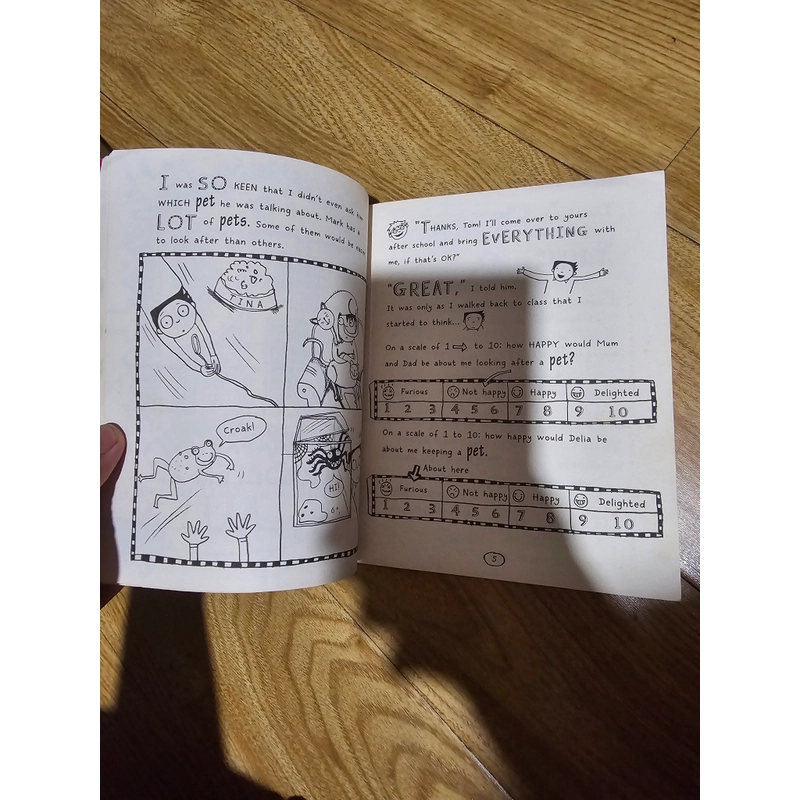 I was SO KEEN that I didn't even ask
WHICH pet he was talking about. Mark has a
LOT of pets. Some of them would be
to look after than others.
TINA
Croak!
HI!
"THANKS, Tom! I'll come over to yours
after school and bring EVERYTHING with
me, if that's OK?"
"GREAT," I told him.
It was only as I walked back to class that I
started to think...
On a scale of 1 → to 10: how HAPPY would Mum
and Dad be about me looking after a pet?
Furious Not happy Happy Delighted
1 2 3 4 5 6 7 8 9 10
On a scale of 1 to 10: how happy would Delia be
about me keeping a pet.
About here
Furious Not happy Happy Delighted
1 2 3 4 5 6 7 8 9 10
5